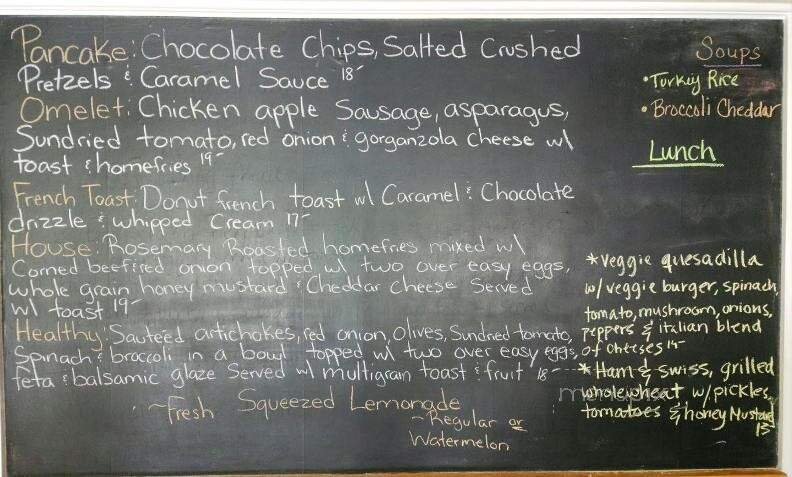 Pancake: Chocolate Chips, Salted Crushed
Pretzels & Caramel Sauce 18-
Omelet: Chicken apple Sausage, asparagus,
Sundried tomato, red onion & gorganzola cheese w/
toast & homefries 19-
French Toast: Donut french toast w/ Caramel & Chocolate
drizzle & whipped Cream 17-
House: Rosemary Roasted homefries mixed w/
Corned beef, red onion topped w/ two over easy eggs,
whole grain honey mustard & Cheddar Cheese Served
w/ toast 19-
Healthy: Sauteéd artichokes, red onion, Olives, Sundried tomato,
Spinach & broccoli in a bowl topped w/ two over easy eggs,
feta & balsamic glaze Served w/ multigrain toast & fruit 18-
~Fresh Squeezed Lemonade
~Regular or
Watermelon
Soups
•Turkey Rice
•Broccoli Cheddar
Lunch
*Veggie quesadilla
w/veggie burger, spinach,
tomato, mushroom, onions,
peppers & italian blend
of cheeses 14-
*Ham & swiss, grilled
whole wheat w/pickles,
tomatoes & honey Mustard
13-